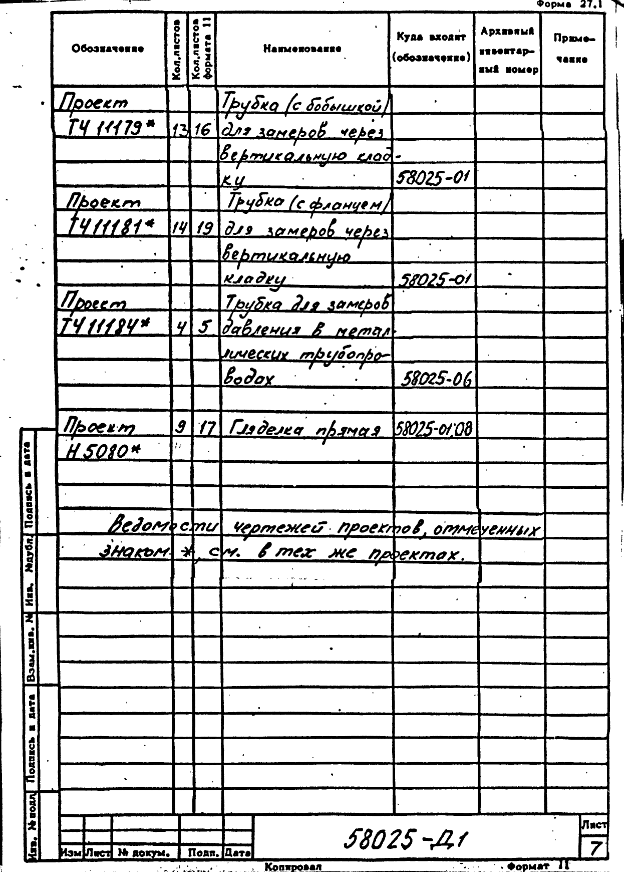 Форма 27.1
Обозначение Кол.листов Кол.листов формата 11 Наименование Куда входит (обозначение) Архивный инвентарный номер Примечание
Проект Трубка (с бобышкой)
ТЧ 11179* 13 16 для замеров через
вертикальную клад-
ку 58025-01
Проект Трубка (с фланцем)
ТЧ 11181* 14 19 для замеров через
вертикальную
кладку 58025-01
Проект Трубка для замеров
ТЧ 11184* 4 5 давления в метал-
лических трубопро-
водах 58025-06
Проект 9 17 Гляделка прямая 58025-01,08
Н 5080*
Ведомости чертежей проектов, отмеченных
знаком *, см. в тех же проектах.
Инв. № подл. Подпись и дата Взам.инв. № Инв. №дубл. Подпись и дата
58025-Д1
Лист
7
Изм Лист № докум. Подп. Дата
Копировал Формат 11